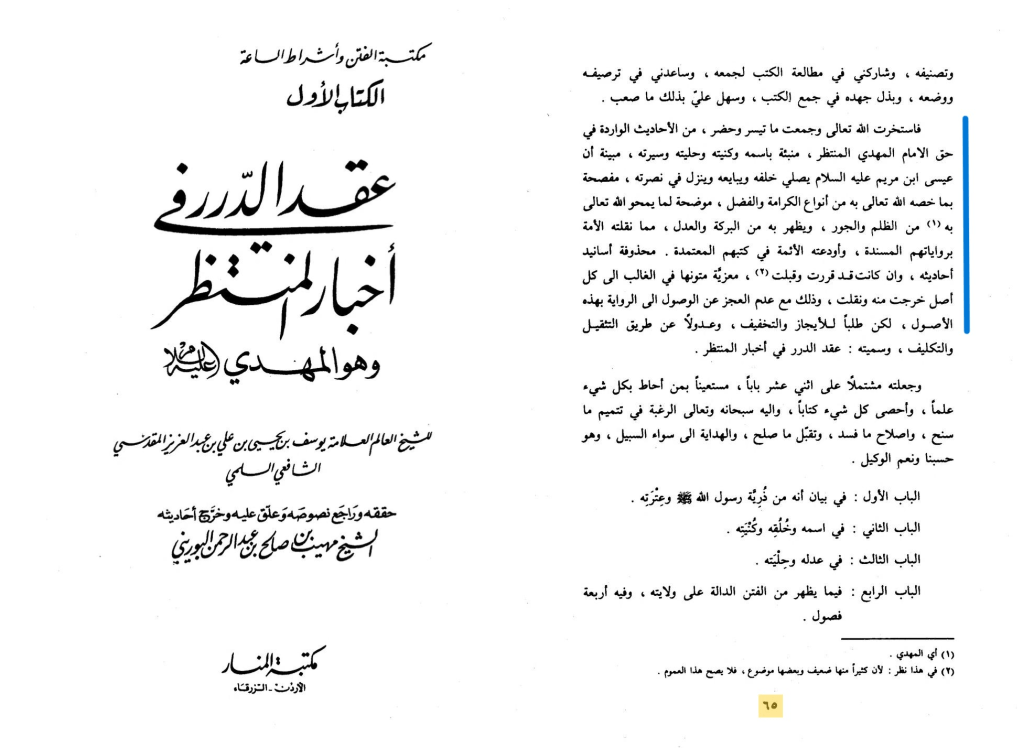 مكتبة الفتن وأشراط الساعة
الكتاب الأول
عقد الدرر في
أخبار المنتظر
وهو المهدي (عليه السلام)
للشيخ العالم العلامة يوسف بن يحيى بن علي بن عبد العزيز المقدسي
الشافعي السلمي
حققه وراجع نصوصه وعلق عليه وخرّج أحاديثه
الشيخ مهيب بن صالح بن عبد الرحمن البوريني
مكتبة المنار
الأردن - الزرقاء
وتصنيفه ، وشاركني في مطالعة الكتب لجمعه ، وساعدني في ترصيفه
ووضعه ، وبذل جهده في جمع الكتب ، وسهل عليّ بذلك ما صعب .
فاستخرت الله تعالى وجمعت ما تيسر وحضر ، من الأحاديث الواردة في
حق الامام المهدي المنتظر ، منبئة باسمه وكنيته وحليته وسيرته ، مبينة أن
عيسى ابن مريم عليه السلام يصلي خلفه ويبايعه وينزل في نصرته ، مفصحة
بما خصه الله تعالى به من أنواع الكرامة والفضل ، موضحة لما يمحو الله تعالى
به (١) من الظلم والجور ، ويظهر به من البركة والعدل ، مما نقلته الأمة
برواياتهم المسندة ، وأودعته الأئمة في كتبهم المعتمدة . محذوفة أسانيد
أحاديثه ، وان كانت قد قررت وقبلت (٢) ، معزيّة متونها في الغالب الى كل
أصل خرجت منه ونقلت ، وذلك مع عدم العجز عن الوصول الى الرواية بهذه
الأصول ، لكن طلباً للأيجاز والتخفيف ، وعدولاً عن طريق التثقيل
والتكليف ، وسميته : عقد الدرر في أخبار المنتظر .
وجعلته مشتملًا على اثني عشر باباً ، مستعيناً بمن أحاط بكل شيء
علماً ، وأحصى كل شيء كتاباً ، واليه سبحانه وتعالى الرغبة في تتميم ما
سنح ، واصلاح ما فسد ، وتقبّل ما صلح ، والهداية الى سواء السبيل ، وهو
حسبنا ونعم الوكيل .
الباب الأول : في بيان أنه من ذُرِيَّة رسول الله ﷺ وعِتْرَتِه .
الباب الثاني : في اسمه وخُلُقِه وكُنْيَتِه .
الباب الثالث : في عدله وحِلْيَته .
الباب الرابع : فيما يظهر من الفتن الدالة على ولايته ، وفيه أربعة
فصول .
(١) أي المهدي .
(٢) في هذا نظر : لأن كثيراً منها ضعيف وبعضها موضوع ، فلا يصح هذا العموم .
٦٥